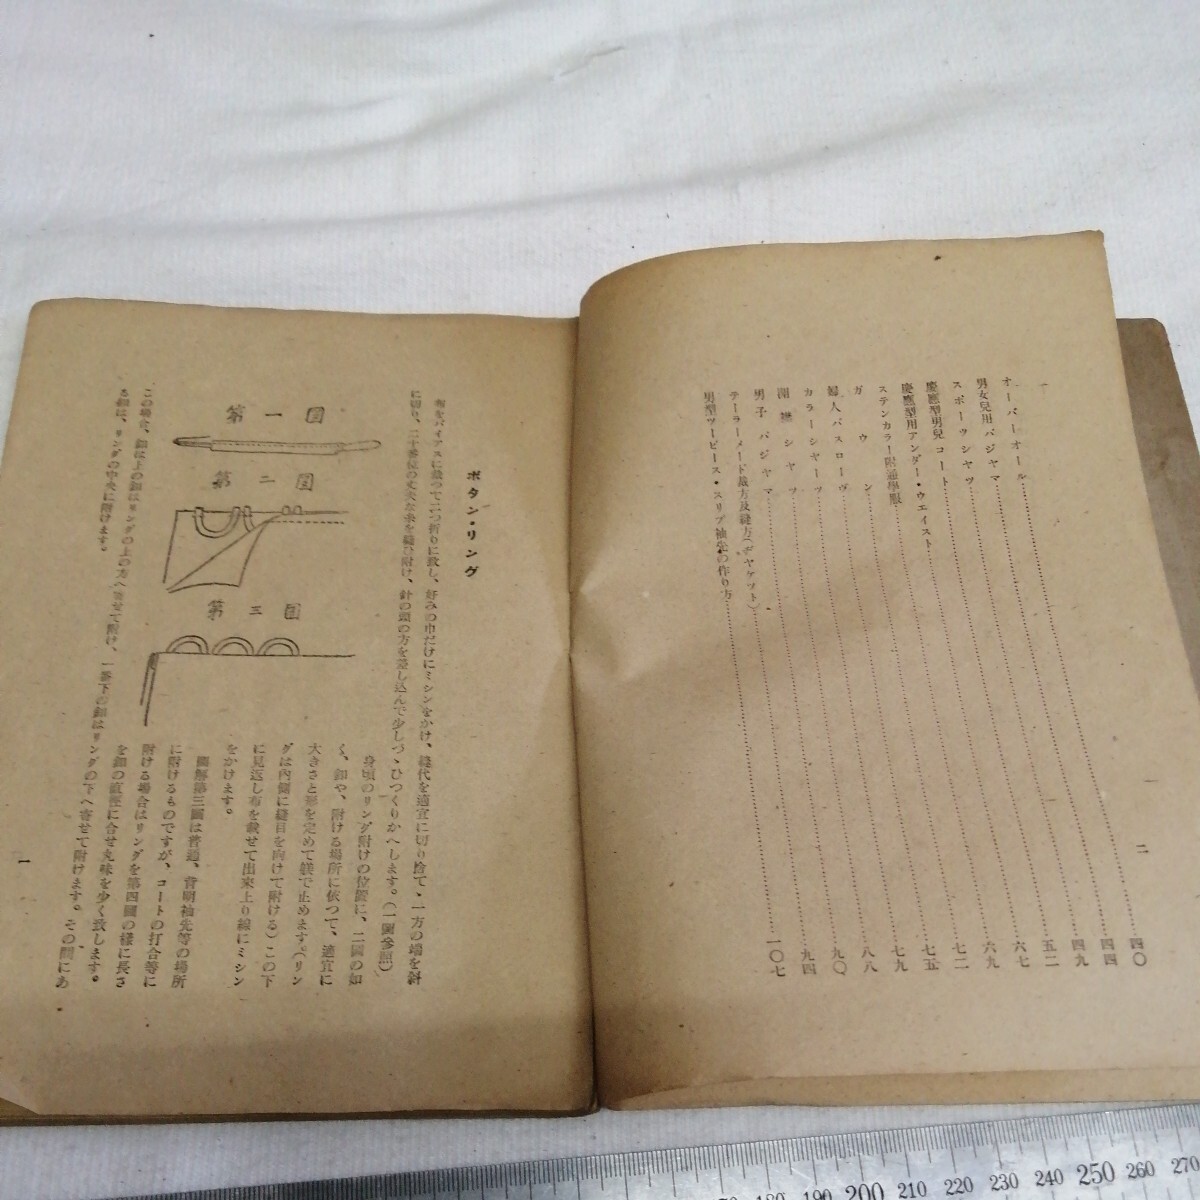 二
オーバーオール……四〇
男女兒用パジヤマ……四四
スポーツシヤツ……四九
慶應型男兒コート……五二
慶應型用アンダー・ウエイスト……六七
ステンカラー附通學服……六九
ガウン……七二
婦人バスローヴ……七五
カラーシヤーツ……七九
開襟シヤツ……八八
男子パジヤマ……九〇
テーラーメード裁方及縫方(ヂヤケツト)……九四
男型ツーピース・スリブ袖先の作り方……一〇七
ボタン・リング
布をバイアスに裁つて二つ折りに致し、好みの巾だけにミシンをかけ、縫代を適宜に切り捨て、一方の端を斜
に切り、二十番位の丈夫な糸を縫ひ附け、針の頭の方を差し込んで少しづゝひつくりかへします。(一圖參照)
第一図
第二図
第三図
身頃のリング附けの位置に、二圖の如
く、釦や、附ける場所に依つて、適宜に
大きさと形を定めて躾で止めます。(リン
グは內側に縫目を向けて附ける)この下
に見返し布を載せて出來上り線にミシン
をかけます。
圖解第三圖は普通、背明袖先等の場所
に附けるものですが、コートの打合等に
附ける場合はリングを第四圖の樣に長さ
を釦の直徑に合せ丸味を少く致します。
この場合、釦は上の釦はリングの上の方へ寄せて附け、一番下の釦はリングの下へ寄せて附けます。その間にあ
る釦は、リングの中央に附けます。
一
200 210 220 230 240 250 260 270